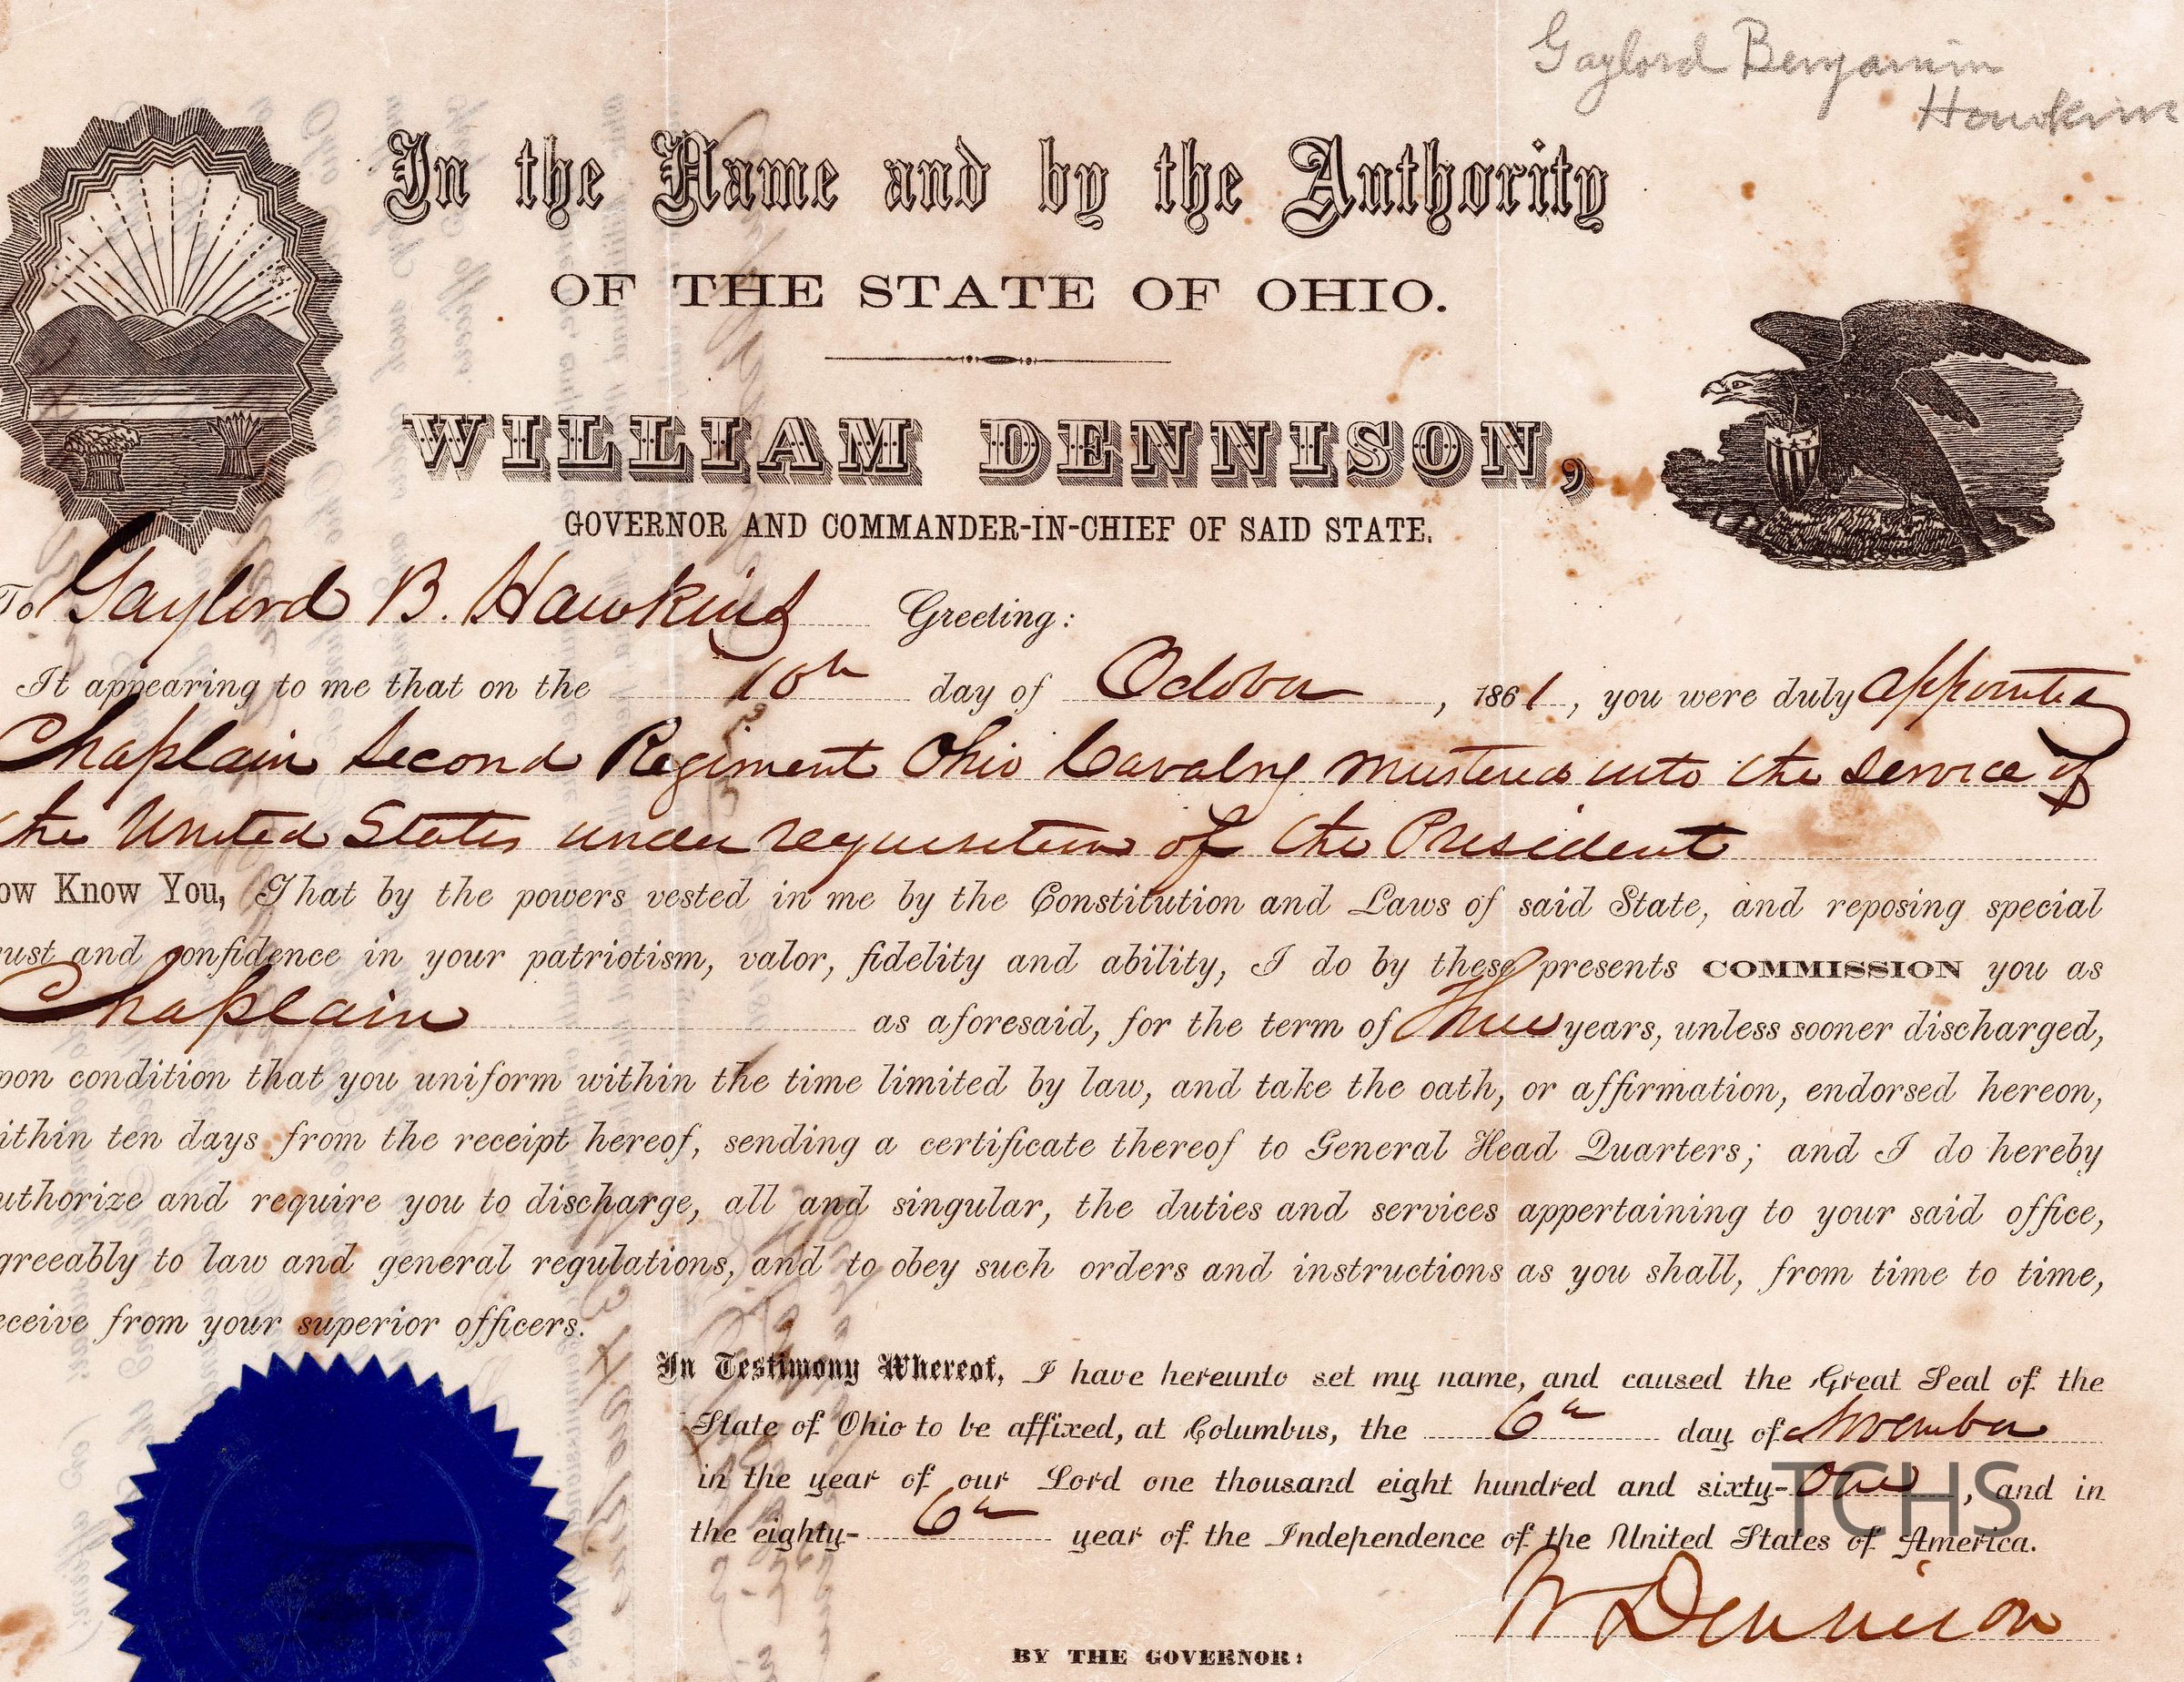 Gaylord Benjamin
Hawkins
In the Name and by the Authority
OF THE STATE OF OHIO.
WILLIAM DENNISON,
GOVERNOR AND COMMANDER-IN-CHIEF OF SAID STATE.
To Gaylord B. Hawkins Greeting:
It appearing to me that on the 10th day of October, 1861, you were duly appointed
Chaplain Second Regiment Ohio Cavalry mustered into the service of
the United States under requisition of the President
ow Know You, That by the powers vested in me by the Constitution and Laws of said State, and reposing special
rust and confidence in your patriotism, valor, fidelity and ability, I do by these presents COMMISSION you as
Chaplain as aforesaid, for the term of Three years, unless sooner discharged,
pon condition that you uniform within the time limited by law, and take the oath, or affirmation, endorsed hereon,
ithin ten days from the receipt hereof, sending a certificate thereof to General Head Quarters; and I do hereby
uthorize and require you to discharge, all and singular, the duties and services appertaining to your said office,
greeably to law and general regulations, and to obey such orders and instructions as you shall, from time to time,
eceive from your superior officers.
In Testimony Whereof, I have hereunto set my name, and caused the Great Seal of the
State of Ohio to be affixed, at Columbus, the 6th day of November
in the year of our Lord one thousand eight hundred and sixty-one, and in
the eighty-6th year of the Independence of the United States of America.
TCHS
W Dennison
BY THE GOVERNOR: